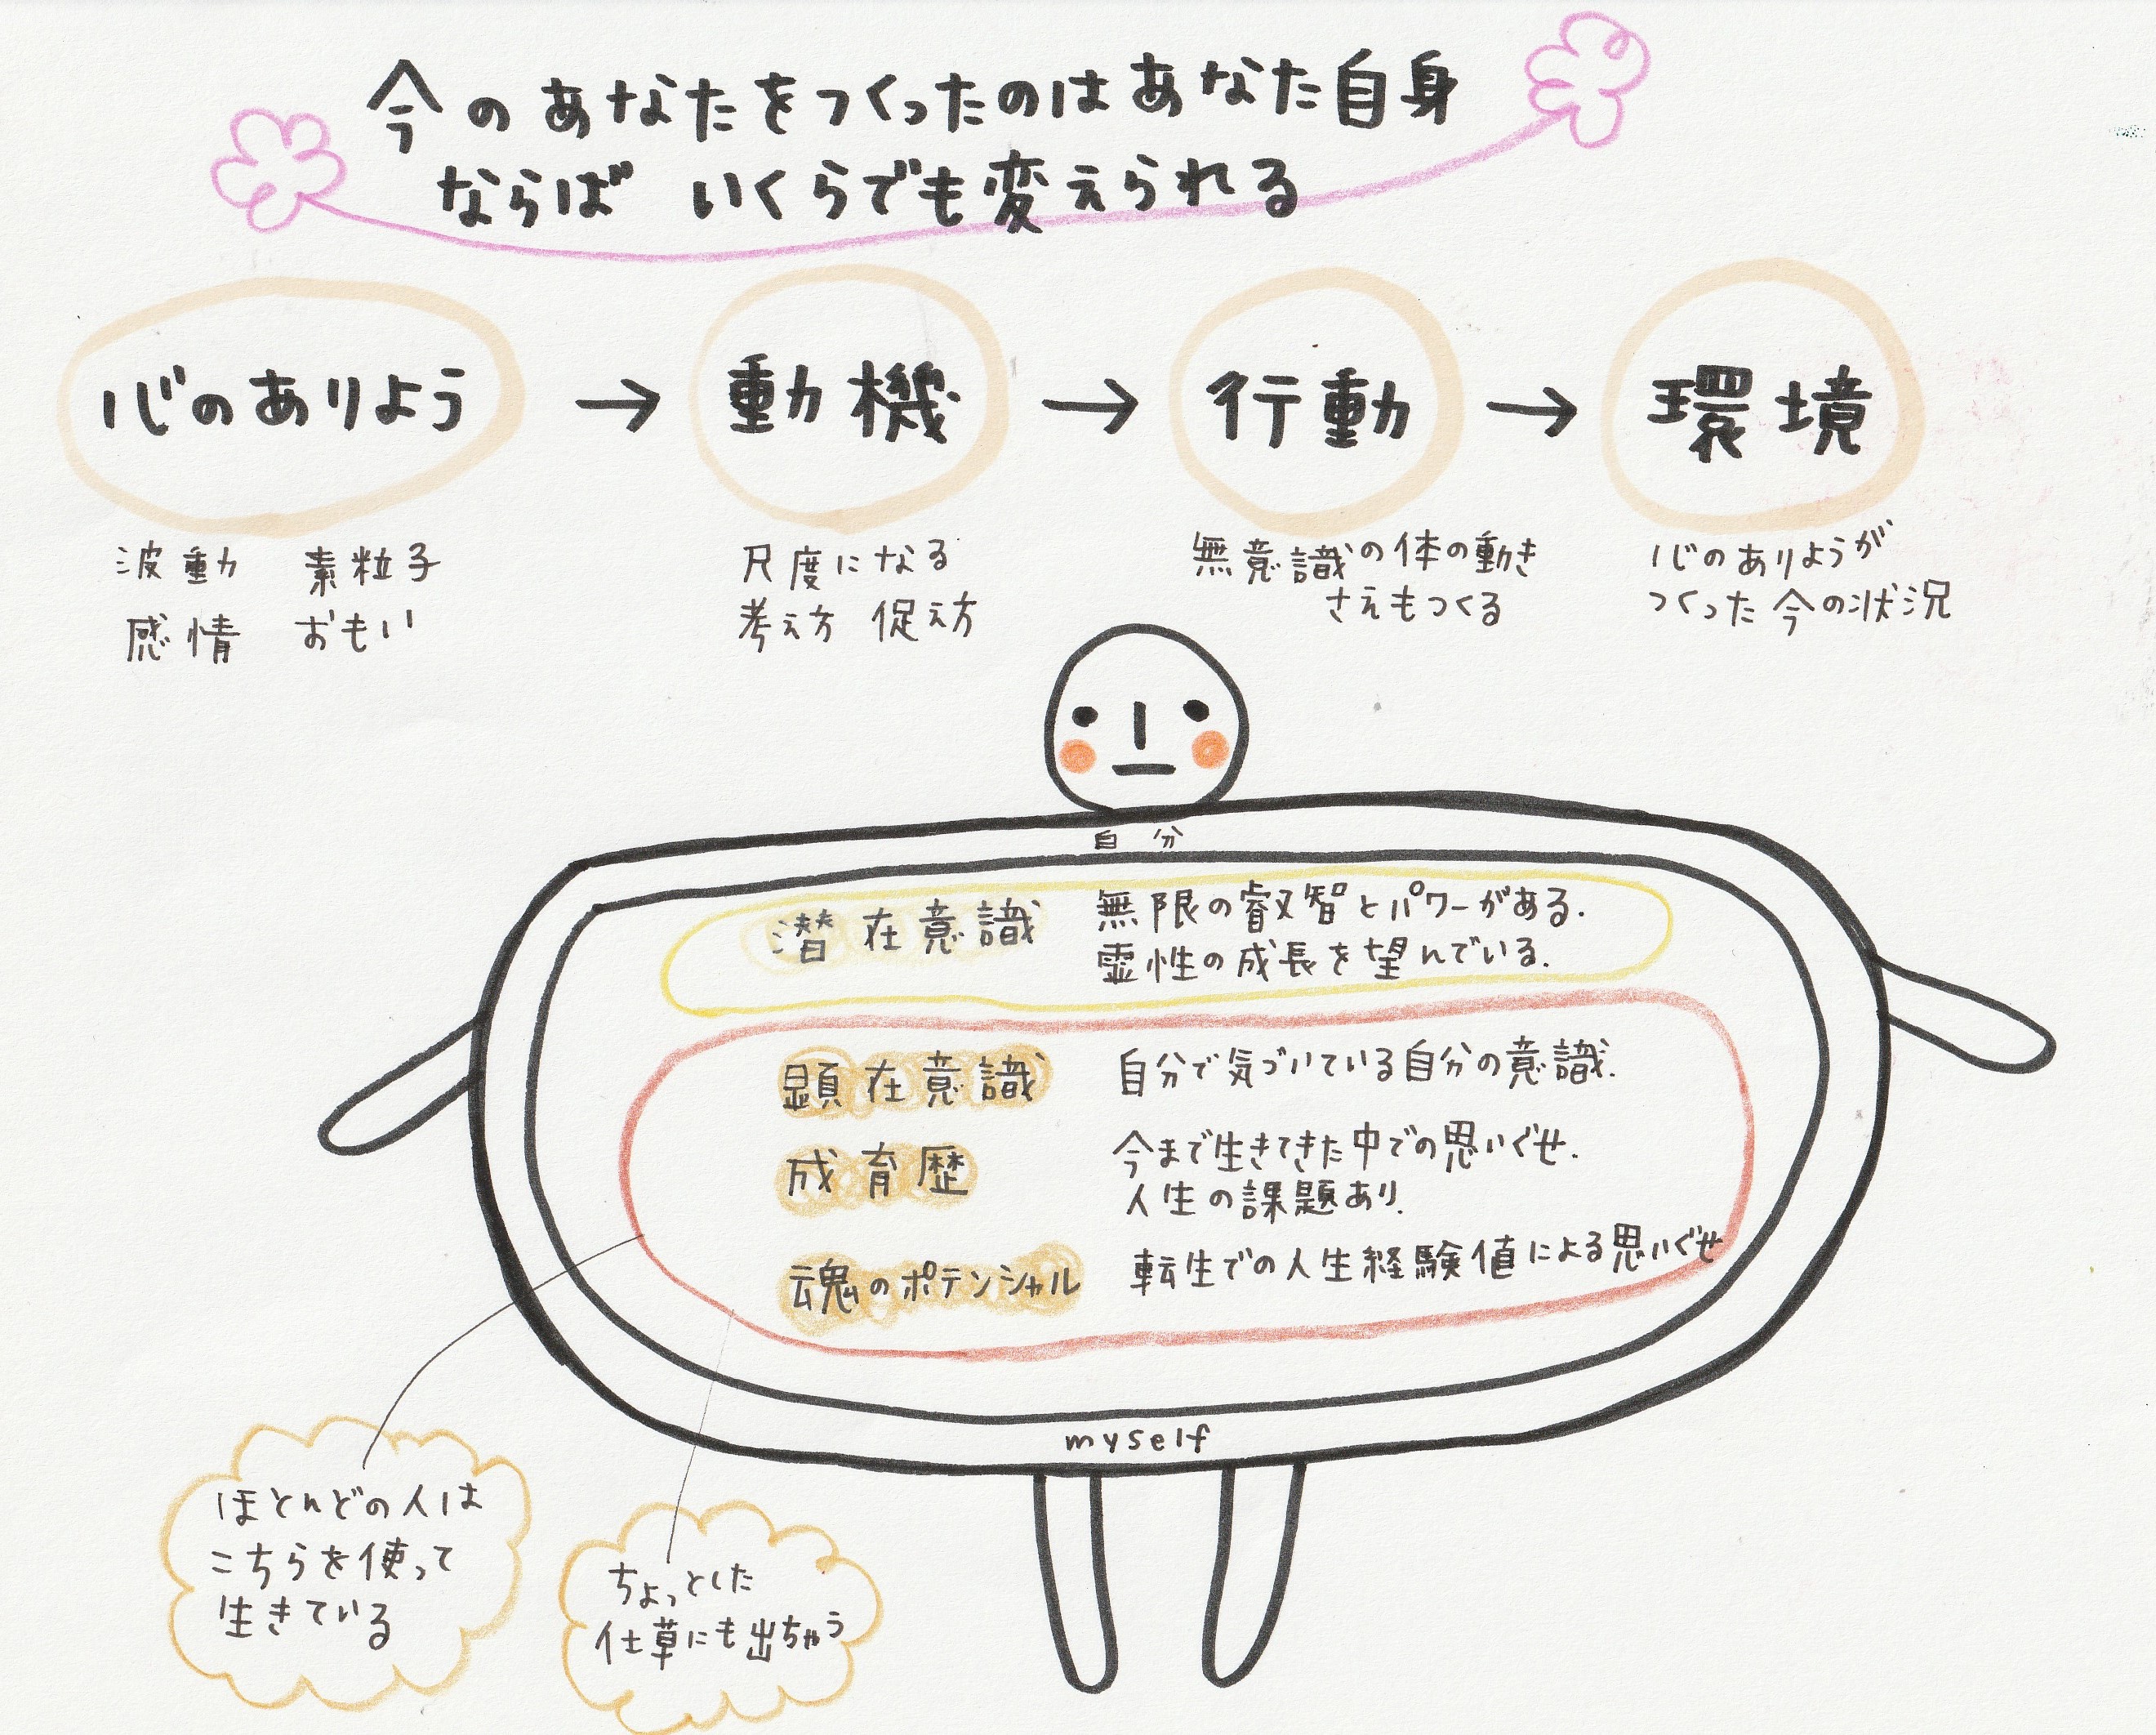 今のあなたをつくったのはあなた自身
ならば いくらでも変えられる
心のありよう → 動機 → 行動 → 環境
波動 素粒子
感情 おもい
尺度になる
考え方 促え方
無意識の体の動き
さえもつくる
心のありようが
つくった今の状況
自分
潜在意識
無限の叡智とパワーがある.
霊性の成長を望んでいる.
顕在意識
自分で気づいている自分の意識.
成育歴
今まで生きてきた中での思いぐせ.
人生の課題あり.
魂のポテンシャル
転生での人生経験値による思いぐせ
myself
ほとんどの人は
こちらを使って
生きている
ちょっとした
仕草にも出ちゃう